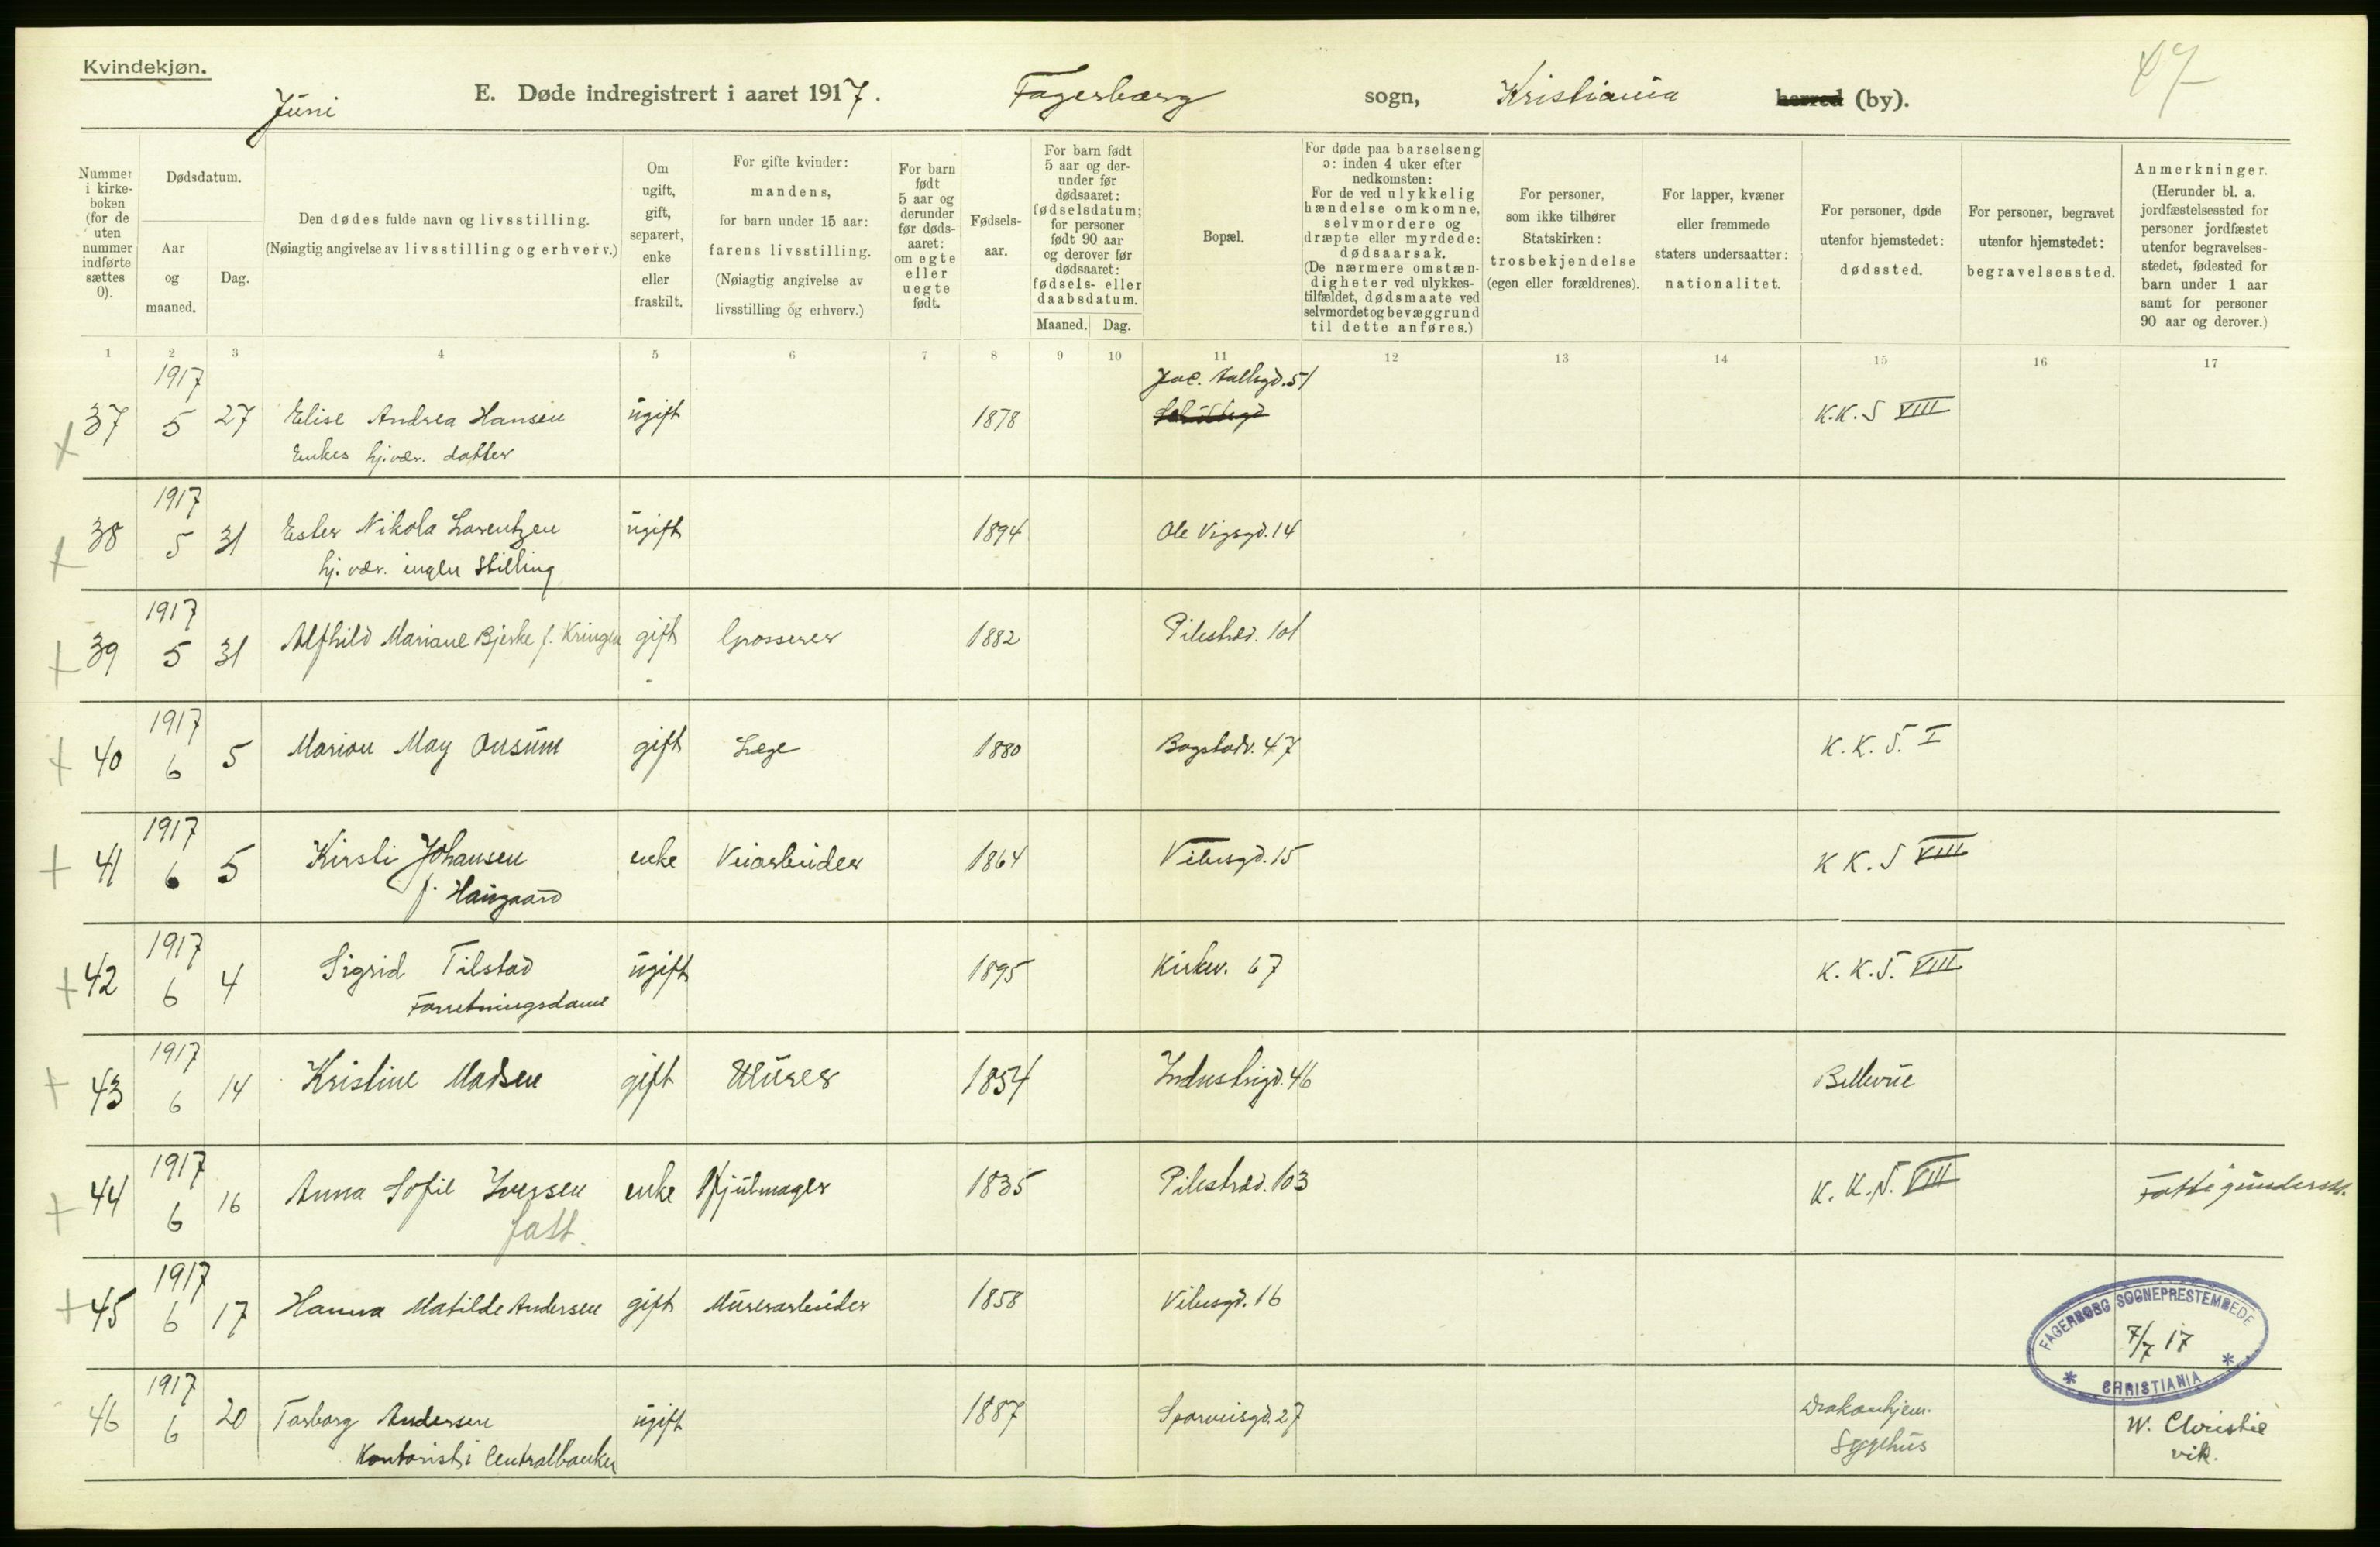 Kvindekjøn.
Juni
E. Døde indregistrert i aaret 1917.
Fagerborg sogn, Kristiania herred (by).
47
Nummer i kirkeboken (for de uten nummer indførte sættes 0).
Dødsdatum.
Aar og maaned.
Dag.
Den dødes fulde navn og livsstilling.
(Nøiagtig angivelse av livsstilling og erhverv.)
Om ugift, gift, separert, enke eller fraskilt.
For gifte kvinder: mandens, for barn under 15 aar: farens livsstilling. (Nøiagtig angivelse av livsstilling og erhverv.)
For barn født 5 aar og derunder før dødsaaret: om egte eller uegte født.
Fødselsaar.
For barn født 5 aar og derunder før dødsaaret: fødselsdatum; for personer født 90 aar og derover før dødsaaret: fødsels- eller daabsdatum.
Maaned. Dag.
Bopæl.
For døde paa barselseng ɔ: inden 4 uker efter nedkomsten: For de ved ulykkelig hændelse omkomne, selvmordere og dræpte eller myrdede: dødsaarsak. (De nærmere omstændigheter ved ulykkestilfældet, dødsmaate ved selvmordet og bevæggrund til dette anføres.)
For personer, som ikke tilhører Statskirken: trosbekjendelse (egen eller forældrenes).
For lapper, kvæner eller fremmede staters undersaatter: nationalitet.
For personer, døde utenfor hjemstedet: dødssted.
For personer, begravet utenfor hjemstedet: begravelsessted.
Anmerkninger. (Herunder bl. a. jordfæstelsessted for personer jordfæstet utenfor begravelsesstedet, fødested for barn under 1 aar samt for personer 90 aar og derover.)
1 2 3 4 5 6 7 8 9 10 11 12 13 14 15 16 17
1917 Jac. Aallsgd. 51
37 5 27 Elise Andrea Hansen ugift 1878 K.K.S VIII
Enkes hj.vær. datter
1917
38 5 31 Ester Nikola Lorentzen ugift 1894 Ole Vigsgd. 14
hj. vær. ingen stilling
1917
39 5 31 Alfhild Mariane Bjerke f. Kringen gift Grosserer 1882 Pilestræd. 101
1917
40 6 5 Marion May Onsum gift Læge 1880 Bogstadv. 47 K.K.S. I
1917
41 6 5 Kirsti Johansen enke Veiarbeider 1864 Vibesgd. 15 K K. S VIII
f. Haugaard
1917
42 6 4 Sigrid Tilstad ugift 1895 Kirkev. 67 K.K.S. VIII
Forretningsdame
1917
43 6 14 Kristine Madsen gift Murer 1854 Industrigd. 46 Bellevue
1917
44 6 16 Anna Sofie Iversen enke Hjulmager 1835 Pilestræd. 103 K.K.S. VIII Fattigunderst.
fatt.
1917
45 6 17 Hanna Matilde Andersen gift Murerarbeider 1858 Vibesgd. 16
FAGERBORG SOGNEPRESTEMBEDE
7/7 17
* CHRISTIANIA *
1917
46 6 20 Torborg Andersen ugift 1887 Sporveisgd. 27 Diakonhjem. Sygehus
Kontorist i Centralbanken
W. Christie
vik.